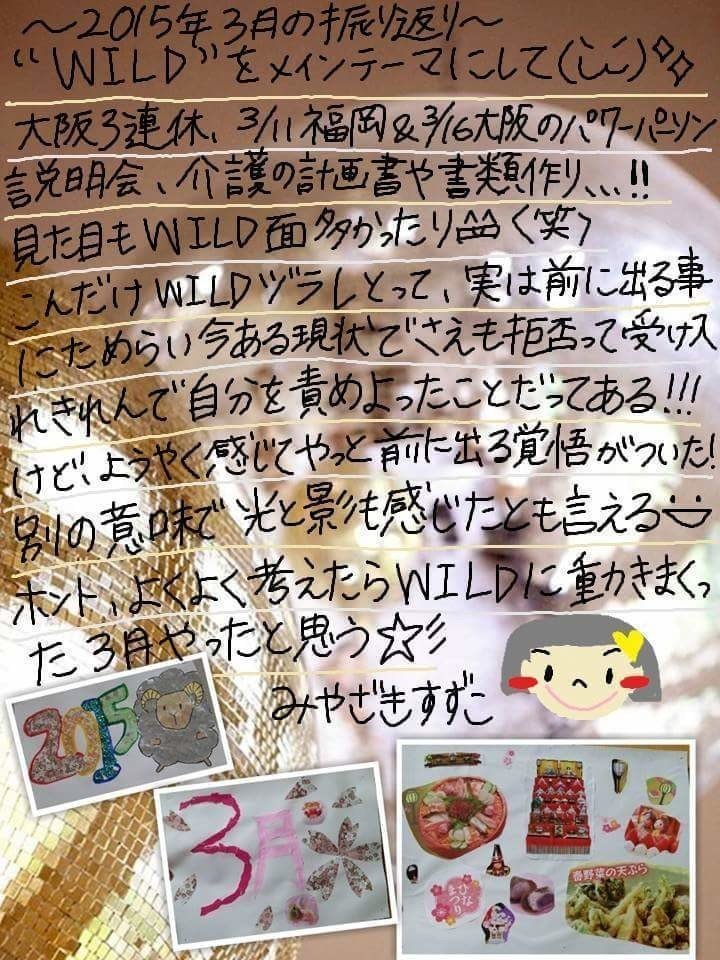 ～2015年3月の振り返り～
“WILD”をメインテーマにして
大阪3連休、3/11福岡&3/16大阪のパワーパーソン
説明会、介護の計画書や書類作り、、、!!
見た目もWILD面多かったり(笑)
こんだけWILDヅラしとって、実は前に出る事
にためらい今ある現状でさえも拒否って受け入
れきれんで自分を責めよったことだってある!!!
けど、ようやく感じてやっと前に出る覚悟がついた!
別の意味で光と影も感じたとも言える
ホント、よくよく考えたらWILDに動かきまくっ
た3月やったと思う☆彡
みやざきすずこ
2015
3月
ひなまつり
春野菜の天ぷら